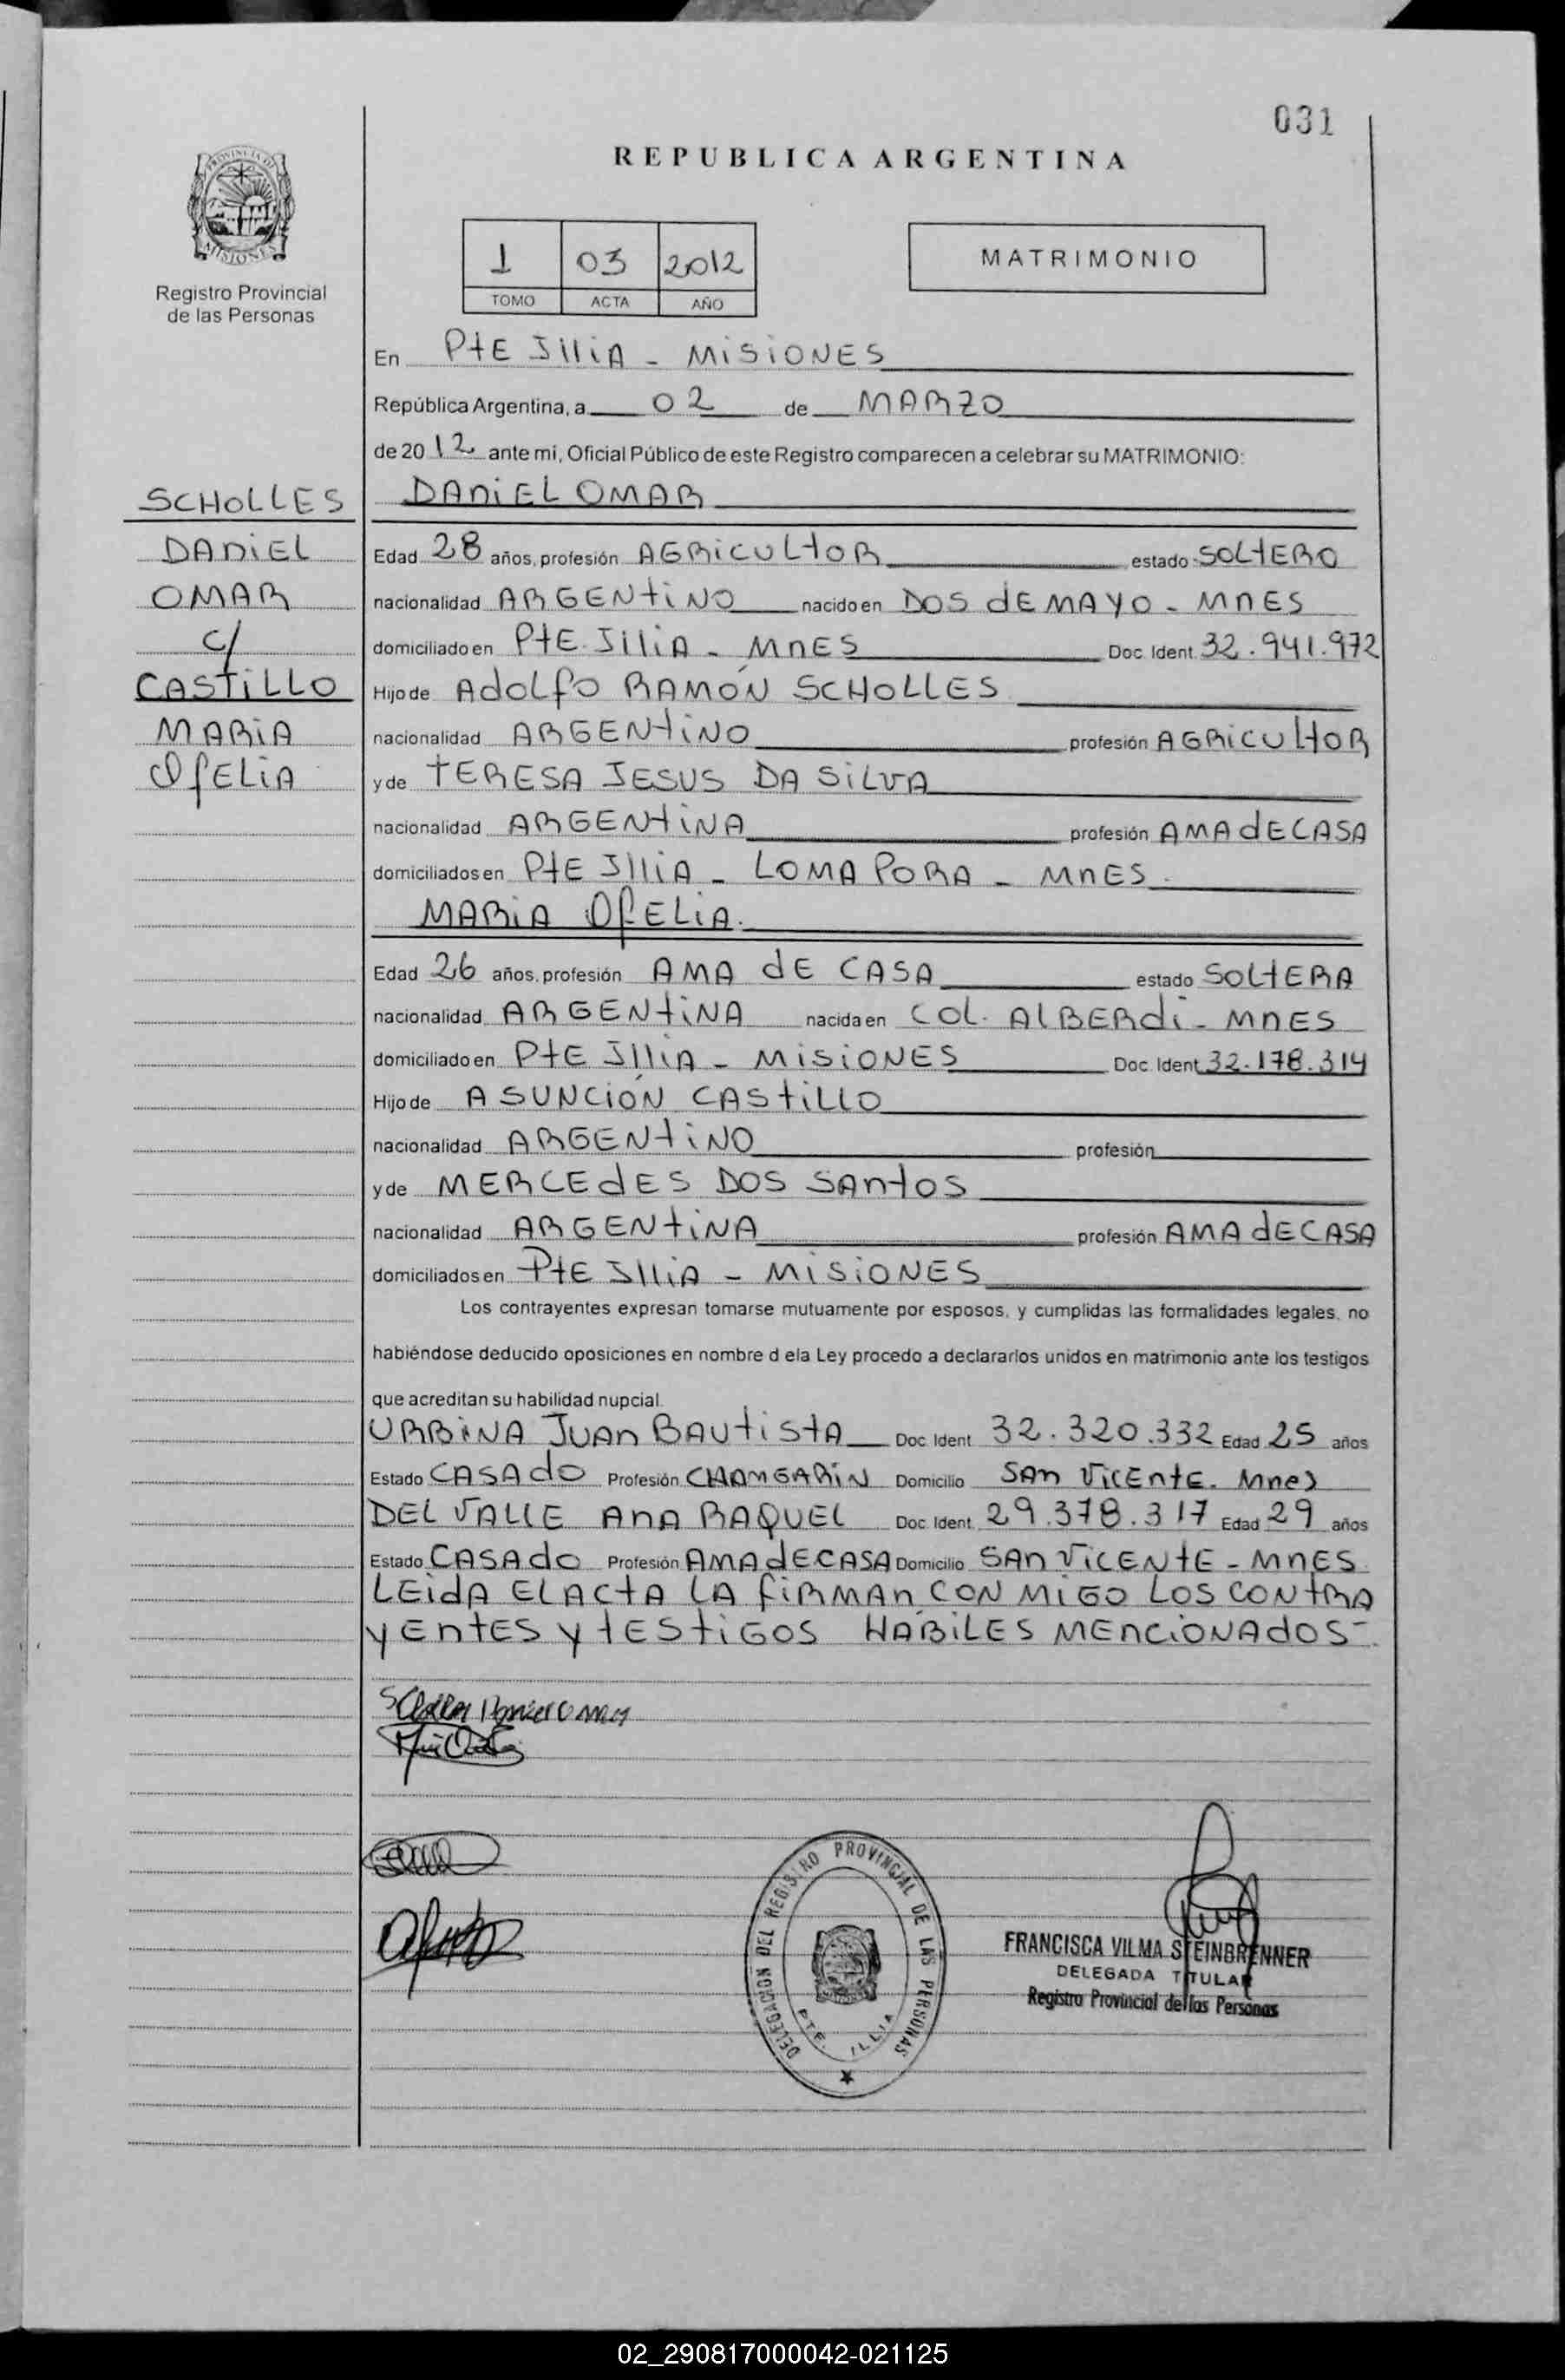 031
REPUBLICA ARGENTINA
PROVINCIA DE MISIONES
Registro Provincial
de las Personas
1 03 2012
TOMO ACTA AÑO
MATRIMONIO
En PtE Illia - MISIONES
República Argentina, a 02 de MARZO
de 20 12 ante mi, Oficial Público de este Registro comparecen a celebrar su MATRIMONIO:
SCHOLLES DANIEL OMAR
DANIEL Edad 28 años, profesión AGRICULTOR estado SOLTERO
OMAR nacionalidad ARGENTINO nacido en DOS dE MAYO - MnES
c/ domiciliado en PtE. Illia - MnES Doc. Ident. 32.941.972
CASTILLO Hijo de AdOLfO RAMÓN SCHOLLES
MARIA nacionalidad ARGENTINO profesión AGRICULTOR
OfELIA y de TERESA JESUS DA SILVA
nacionalidad ARGENTINA profesión AMA dE CASA
domiciliados en PtE Illia - LOMA PORA - MnES.
MARIA OfELIA.
Edad 26 años, profesión AMA dE CASA estado SOLTERA
nacionalidad ARGENTINA nacida en COL. ALBERdi - MnES
domiciliado en PtE Illia - MISIONES Doc. Ident. 32.178.314
Hijo de ASUNCIÓN CASTILLO
nacionalidad ARGENTINO profesión
y de MERCEdES DOS SANTOS
nacionalidad ARGENTINA profesión AMA dE CASA
domiciliados en PtE Illia - MISIONES
Los contrayentes expresan tomarse mutuamente por esposos, y cumplidas las formalidades legales, no
habiéndose deducido oposiciones en nombre d ela Ley procedo a declararlos unidos en matrimonio ante los testigos
que acreditan su habilidad nupcial.
URBINA JUAn BAUTISTA Doc. Ident. 32.320.332 Edad 25 años
Estado CASAdO Profesión CHANGARIN Domicilio SAn VICEntE. Mnes
DEL VALLE AnA RAQUEL Doc. Ident. 29.378.317 Edad 29 años
Estado CASAdO Profesión AMA dE CASA Domicilio SAn VICENTE - MnES
LEIdA EL ACTA LA fIRMAn CON MIGO LOS CONTRA
YEnTES Y TESTIGOS HABILES MEnCIONAdOS-.
DELEGACION DEL REGISTRO PROVINCIAL DE LAS PERSONAS
PTE. ILLIA
FRANCISCA VILMA STEINBRENNER
DELEGADA TITULAR
Registro Provincial de las Personas
02_290817000042-021125